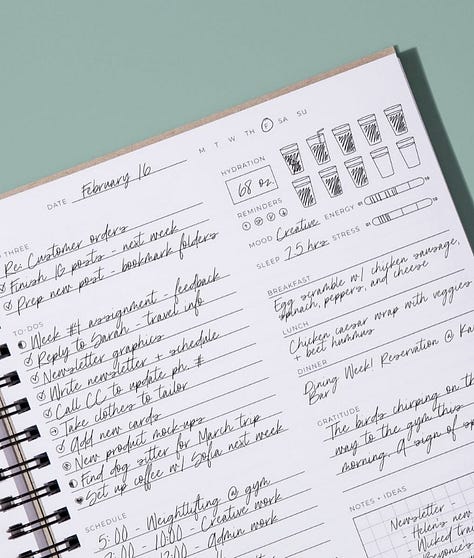 DATE February 16
M T W TH F SA SU
THREE
Re: Customer orders
Finish IG posts - next week
Prep new post - bookmark folders
TO-DOS
Week #1 assignment - feedback
Reply to Sarah - travel info
Newsletter graphics
Write newsletter + schedule
Call CC to update ph. #
Take clothes to tailor
Add new cards
New product mock-ups
Find dog sitter for March trip
Set up coffee w/ Sofia next week
SCHEDULE
5:00 - Weightlifting @ gym
10:00 - Creative work
12:00 - Admin work
HYDRATION
68 oz
REMINDERS
MOOD Creative ENERGY
SLEEP 7.5 hrs STRESS
BREAKFAST
Egg scramble w/ chicken sausage,
spinach, peppers, and cheese
LUNCH
Chicken caesar wrap with veggies
+ beet hummus
DINNER
Dining Week! Reservation @
Bar!
GRATITUDE
The birds chirping on th
way to the gym this
morning. A sign of
NOTES + IDEAS
Newsletter
Helen's new
Wicked